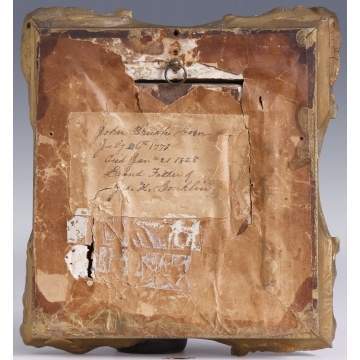 John Brush Born
July 26th 1778
Died Jan 21 1828
Grand Father of
Conklin